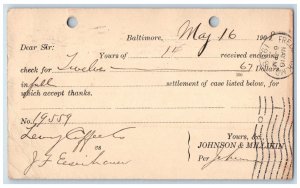 Baltimore, May 16 190
Dear Sir:
Yours of 14 received enclosing
check for Twelve 67 Dollars
in full settlement of case listed below, for
which accept thanks.
No. 19559
Yours, &c
JOHNSON & MILLIKIN
vs
Per
J F Eisenhauer